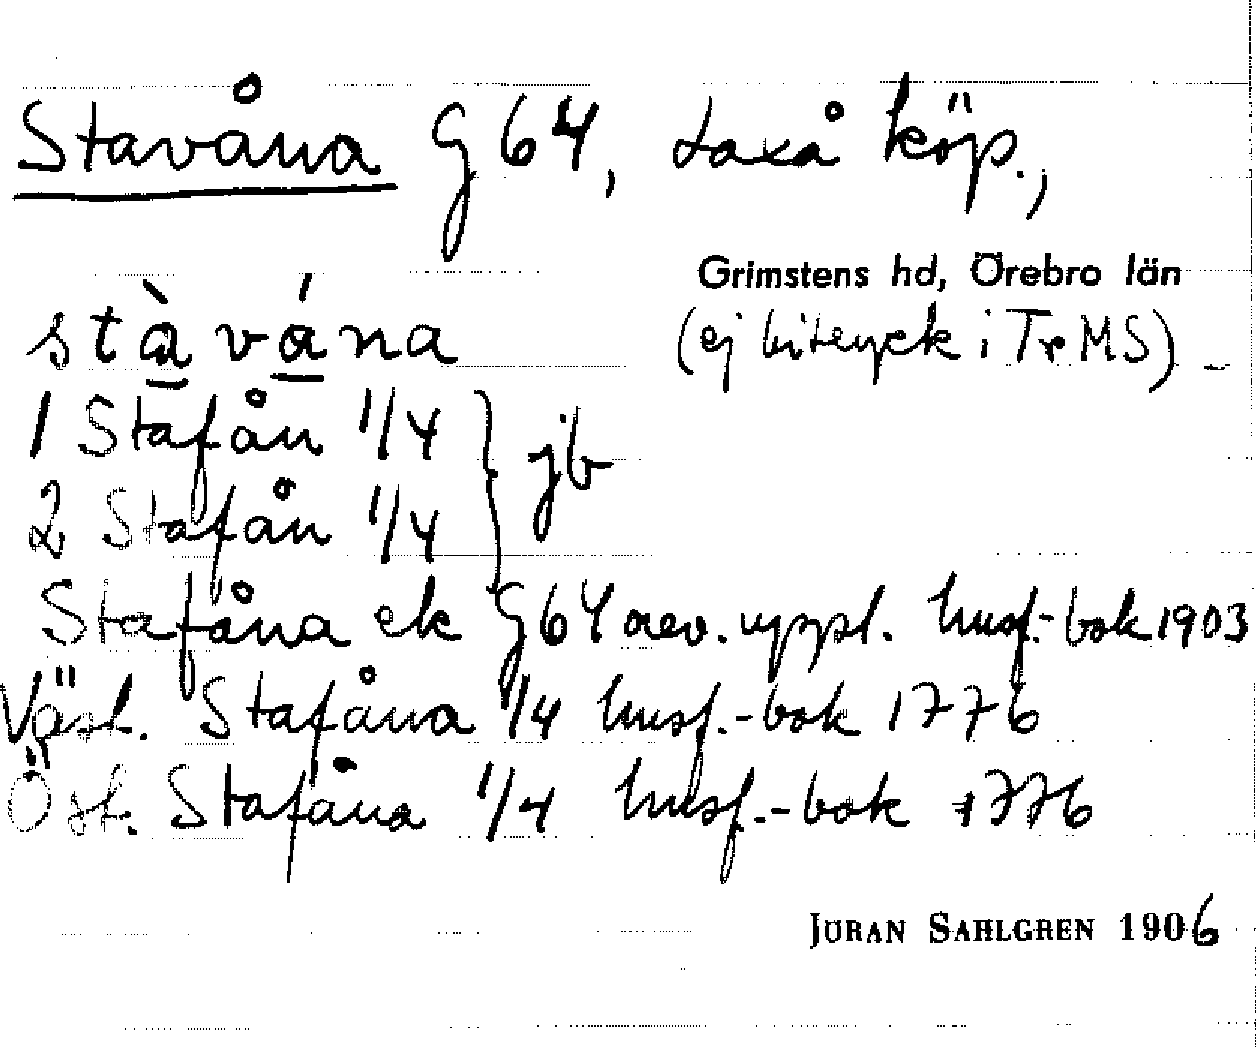 Stavåna G 64, Laxå köp.,
Grimstens hd, Örebro län
stàvána (ej bitryck i Tr MS) -
1 Stafån 1/4 } jb
2 Stafån 1/4
Stafåna ek G 64 rev. uppl. husf.-bok 1903
Väst. Stafåna 1/4 husf.-bok 1776
Öst. Stafåna 1/4 husf.-bok 1776
JÖRAN SAHLGREN 1906